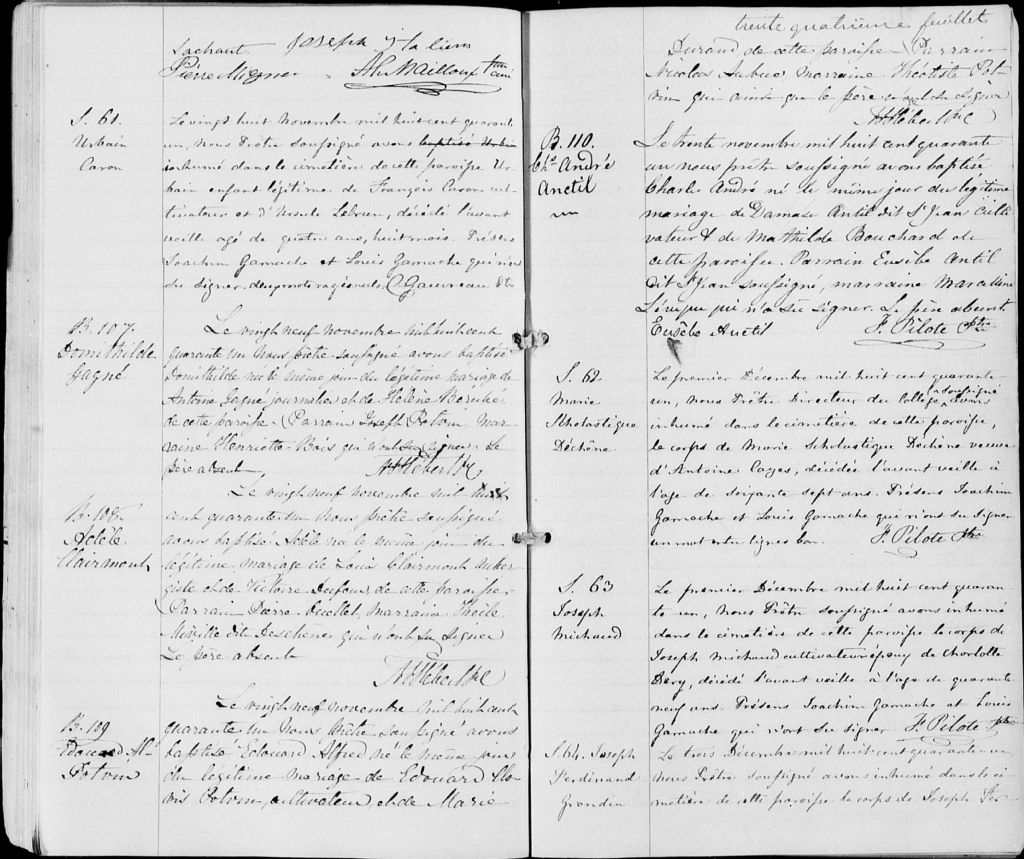 Sachant Joseph Italien
Pierre Mignier A. L. Mailloux ptre curé
S. 61.
Urbain
Caron
Le vingt huit Novembre mil huit cent quarante
un, nous Prêtre soussigné avons baptisé Urbain
inhumé dans le cimetière de cette paroisse Ur-
bain enfant légitime de François Caron cul-
tivateur et d'Ursule Lebrun, décédé l'avant
veille agé de quatre ans, huit mois. Présens
Joachim Gamache et Louis Gamache qui n'ont
su signer. deux mots rayés nuls. C. Gauvreau Ptre
B. 107.
Domithilde
Gagné
Le vingt neuf novembre mil huit cent
quarante un nous prêtre soussigné avons baptisé
Domithilde née le même jour du légitime mariage de
Antoine Gagné journalier et de Hélène Bérubé
de cette paroisse. Parrain Joseph Potvin, mar-
raine Henriette Bois qui n'ont su signer. Le
père absent. Hébert Ptre
B. 108
Adèle
Clairmont
Le vingt neuf novembre mil huit
cent quarante un nous prêtre soussigné
avons baptisé Adèle née le même jour du
légitime mariage de Louis Clairmont auber-
giste et de Victoire Dufour de cette paroisse
Parrain Pierre Ouellet, marraine
Miville dit Deschênes qui n'ont su signer
Le père absent
Hébert Ptre
B. 109
Edouard Al.
Potvin
Le vingt neuf novembre mil huit cent
quarante un nous Prêtre soussigné avons
baptisé Edouard Alfred né le même jour
du légitime mariage de Edouard Clo-
vis Potvin, cultivateur et de Marie
trente quatrième feuillet
Durand de cette paroisse Parrain
Nicolas Aubut Marraine Théotiste Pot-
vin qui ainsi que le père n'ont su signer
Hébert Ptre
B. 110.
Chs André
Anctil
Le trente novembre mil huit cent quarante
un nous prêtre soussigné avons baptisé
Charle André né le même jour du légitime
mariage de Damase Antil dit St Jean culti-
vateur & de Mathilde Bouchard de
cette paroisse. Parrain Eusèbe Antil
dit St Jean soussigné, marraine Marcelline
Lévêque qui n'a su signer. Le père absent.
Eusèbe Anctil F. Pilote Ptre
S. 62.
Marie
Scholastique
Dechêne
Le premier Décembre mil huit cent quarante
un, nous Prêtre Directeur du Collège soussigné avons
inhumé dans le cimetière de cette paroisse,
le corps de Marie Scholastique Dechêne veuve
d'Antoine Cazes, décédée l'avant veille à
l'age de soixante sept ans. Présens Joachim
Gamache et Louis Gamache qui n'ont su signer
un mot entre lignes bon. F. Pilote Ptre
S. 63
Joseph
Michaud
Le premier Décembre mil huit cent quaran-
te un, nous Prêtre soussigné avons inhumé
dans le cimetière de cette paroisse le corps de
Joseph Michaud cultivateur époux de Charlotte
Déry, décédé l'avant veille à l'age de quarante
neuf ans. Présens Joachim Gamache et Louis
Gamache qui n'ont su signer. F. Pilote Ptre
S. 64. Joseph
Ferdinand
Grondin
Le trois Décembre mil huit cent quarante un,
nous Prêtre soussigné avons inhumé dans le ci-
metière de cette paroisse le corps de Joseph Fer-